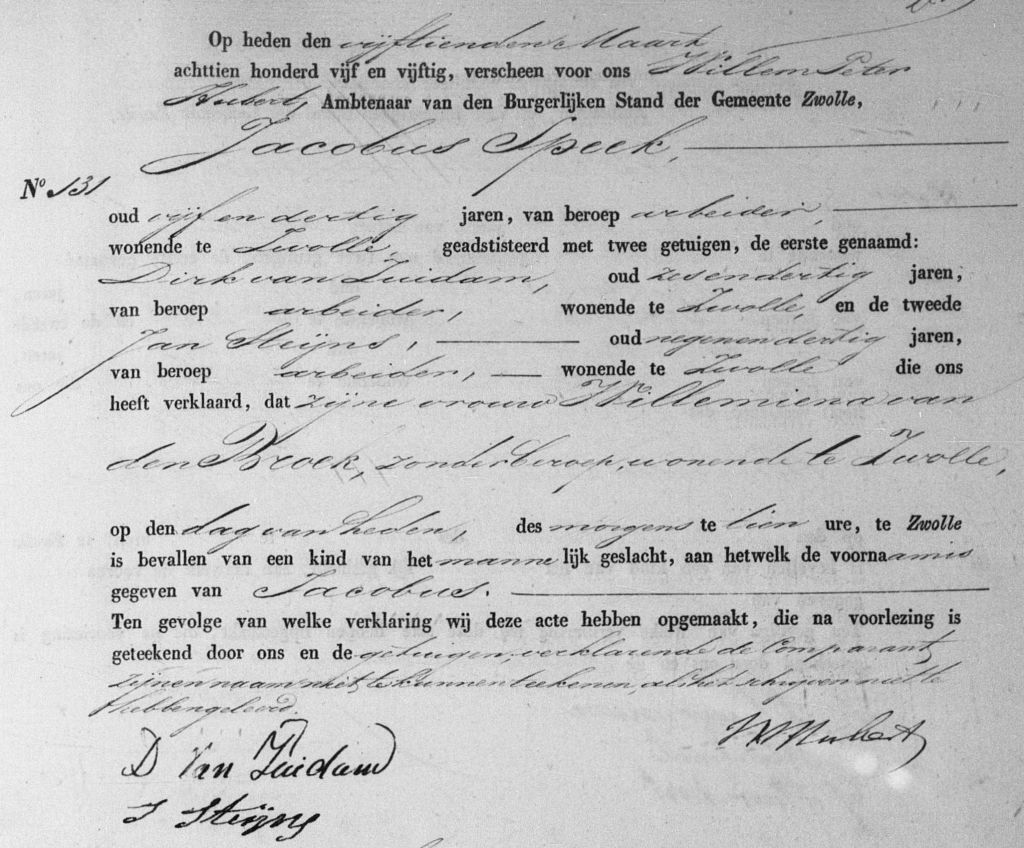 Op heden den vijftienden Maart
achttien honderd vijf en vijftig, verscheen voor ons Willem Peter
Hubert, Ambtenaar van den Burgerlijken Stand der Gemeente Zwolle,
Jacobus Speek,
No. 131
oud vijf en dertig jaren, van beroep arbeider,
wonende te Zwolle, geadstisteerd met twee getuigen, de eerste genaamd:
Dirk van Zuidam, oud zesendertig jaren,
van beroep arbeider, wonende te Zwolle, en de tweede
Jan Steijns, oud negenendertig jaren,
van beroep arbeider, wonende te Zwolle die ons
heeft verklaard, dat zijne vrouw Willemiena van
den Broek, zonder beroep, wonende te Zwolle,
op den dag van heden, des morgens te tien ure, te Zwolle
is bevallen van een kind van het mannelijk geslacht, aan hetwelk de voornaam is
gegeven van Jacobus.
Ten gevolge van welke verklaring wij deze acte hebben opgemaakt, die na voorlezing is
geteekend door ons en de getuigen, verklarende de Comparant
zijnen naam niet te kunnen teekenen, als het schrijven niet te
hebben geleerd.
WPHubert
D Van Zuidam
J Steijns